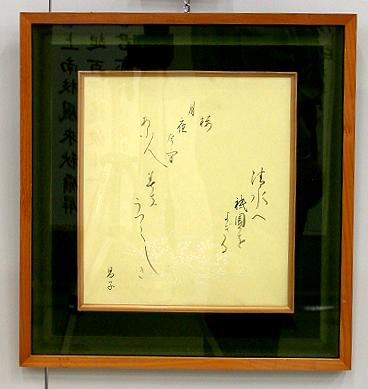 清水へ
祇園を
よぎる
桜
月夜今宵
あふ人
みな
うつくしき
昌子